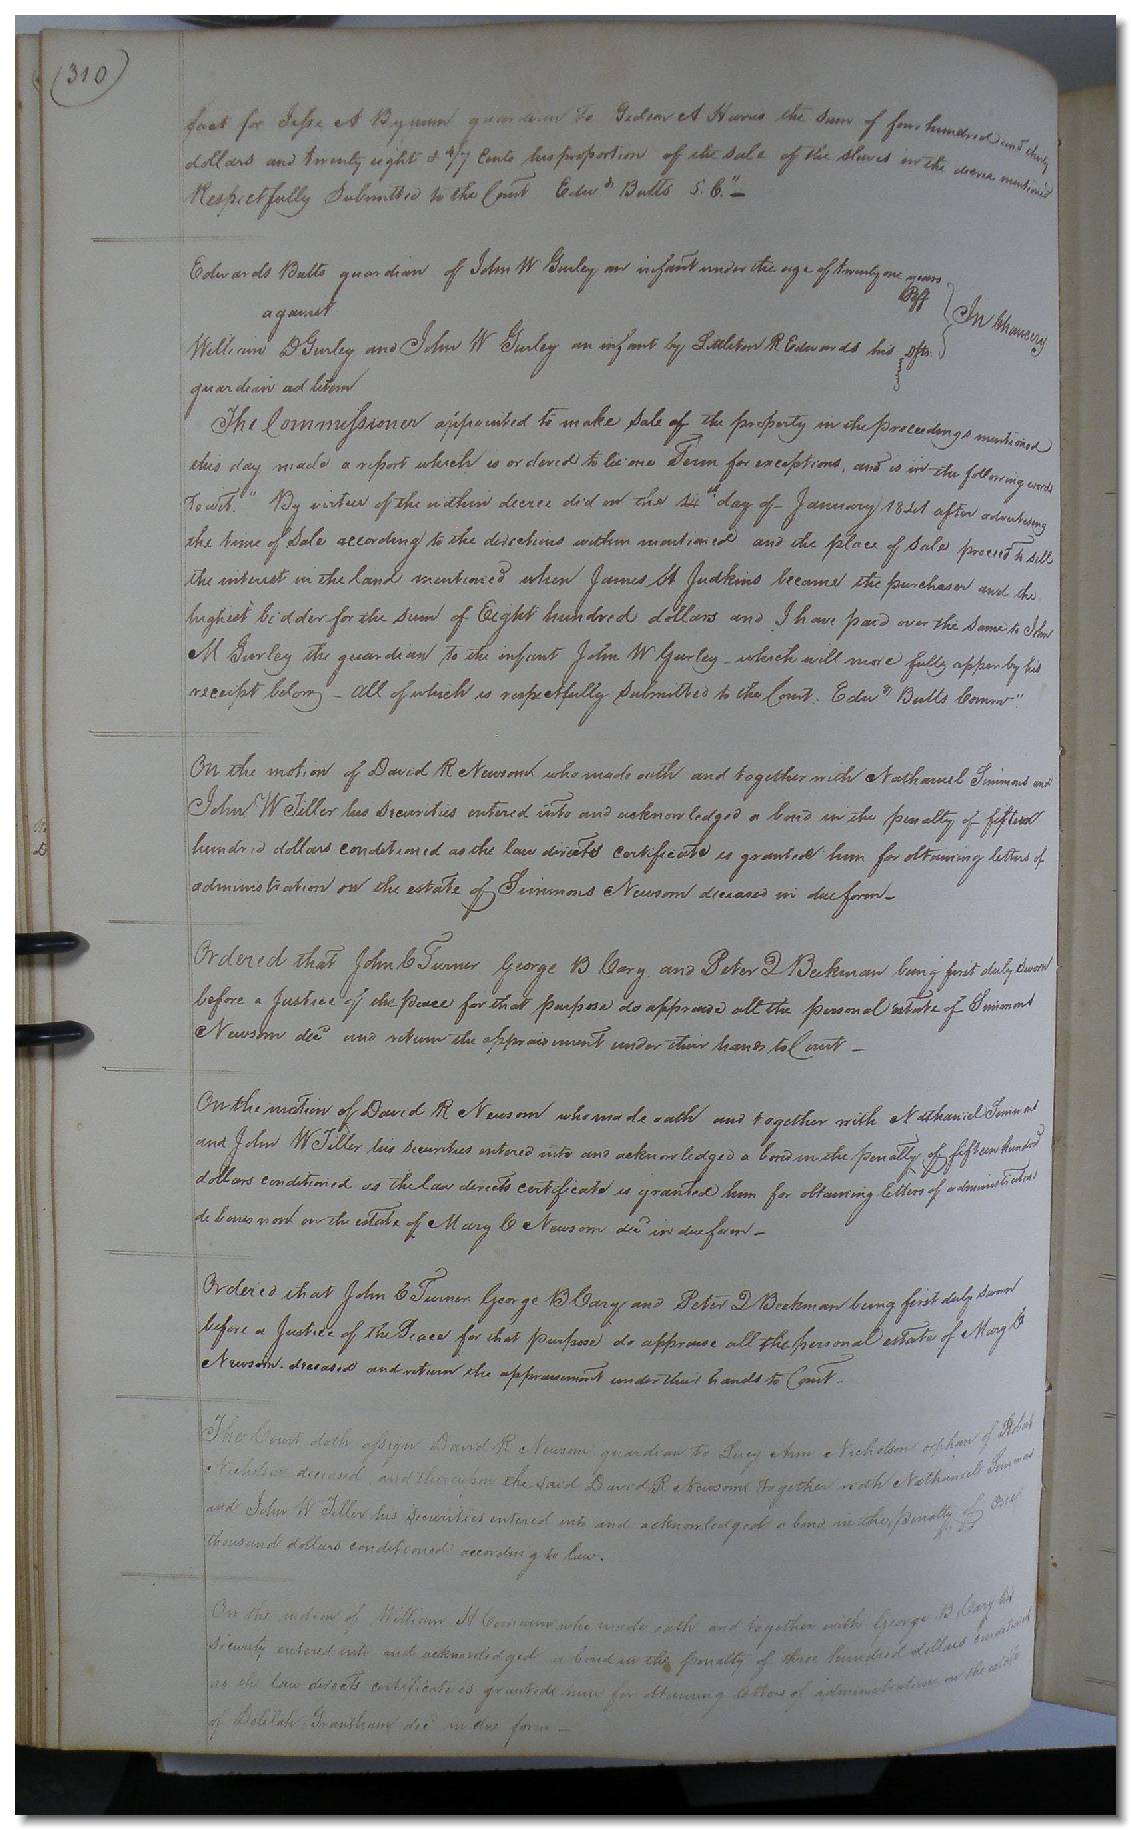 (310)
fact for Jesse A Bynum guardian to Gideon A Harris the sum of four hundred and thirty
dollars and twenty eight & 4/7 Cents his proportion of the sale of the slaves in the decree mentioned
Respectfully Submitted to the Court Edwds Butts S. C."—
Edwards Butts guardian of John W Gurley an infant under the age of twenty one years
Plff
against
In Chancery
William D Gurley and John W Gurley an infant by Littleton R Edwards his Dfts.
guardian ad litem
The Commissioner appointed to make sale of the property in the proceedings mentioned
this day made a report which is ordered to lie one Term for exceptions, and is in the following words
Towit. "By virtue of the within decree did on the 14th day of January 1841 after advertising
the time of Sale according to the directions within mentioned and the place of sale proceed to sell
the interest in the land mentioned when James H Judkins became the purchaser and the
highest bidder for the sum of Eight hundred dollars and I have paid over the same to John
M Gurley the guardian to the infant John W Gurley – which will more fully apper by his
receipt below – all of which is respectfully Submitted to the Court. Edwds Butts Commr"
On the motion of David R Newsom who made oath and together with Nathaniel Simmons and
John W Tiller his securities entered into and acknowledged a bond in the penalty of fifteen
hundred dollars conditioned as the law directs certificate is granted him for obtaining letters of
administration on the estate of Simmons Newsom deceased in due form –
Ordered that John C Turner George B Cary and Peter D Beekman being first duly sworn
before a Justice of the peace for that purpose do appraise all the personal estate of Simmons
Newsom decd and return the appraisement under their hands to Court –
On the motion of David R Newsom who made oath and together with Nathaniel Simmons
and John W Tiller his securities entered into and acknowledged a bond in the penalty of fifteen hundred
dollars conditioned as the law directs certificate is granted him for obtaining letters of administration
de bonis non on the estate of Mary C Newsom decd in due form –
Ordered that John C Turner George B Cary and Peter D Beekman being first duly sworn
before a Justice of the Peace for that purpose do appraise all the personal estate of Mary C
Newsom deceased and return the appraisement under their hands to Court.
The Court doth assign David R Newsom guardian to Lucy Ann Nicholson orphan of Robert
Nicholson deceased and thereupon the said David R Newsom together with Nathaniel Simmons
and John W Tiller his securities entered into and acknowledged a bond in the penalty of One
thousand dollars conditioned according to law.
On the motion of William H who made oath and together with George B Cary his
security entered into and acknowledged a bond in the penalty of three hundred dollars conditioned
as the law directs certificate is granted him for obtaining letters of administration on the estate
of Delilah Grantham decd in due form –